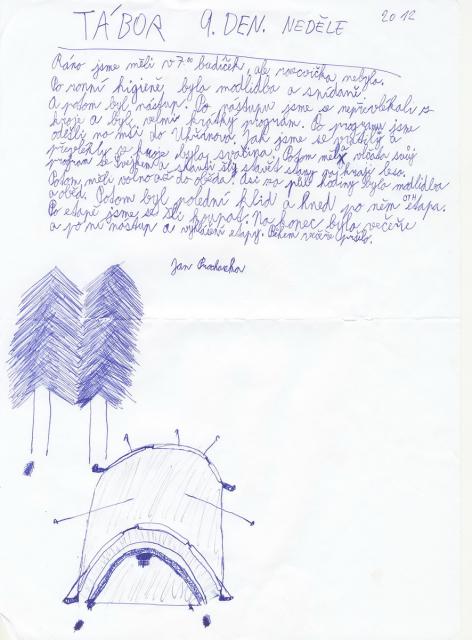 TÁBOR 9. DEN. NEDĚLE 2012
Ráno jsme měli v 7:00 budíček, ale rozcvička nebyla.
Po ranní higieně byla modlidba a snídaně.
A potom byl nástup. Po nástupu jsme se nepřevlékali z
kroje a byl velmi krátký program. Po programu jsme
odešli na mši do Uhřínova. Jak jsme se vrátily a
převlékly z kroje byla svačina. Potom měla vlčata svůj
program se stany na kraji lesa.
Potom měli volno až do oběda. Asi za půl hodiny byla modlidba
a oběd. Potom byl polední klid a hned po něm etapa.
Po etapě jsme se šli koupat. Na konec byla večeře
a po ní nástup a vyhlášení etapy. Během večeře pršelo.
Jan Procházka